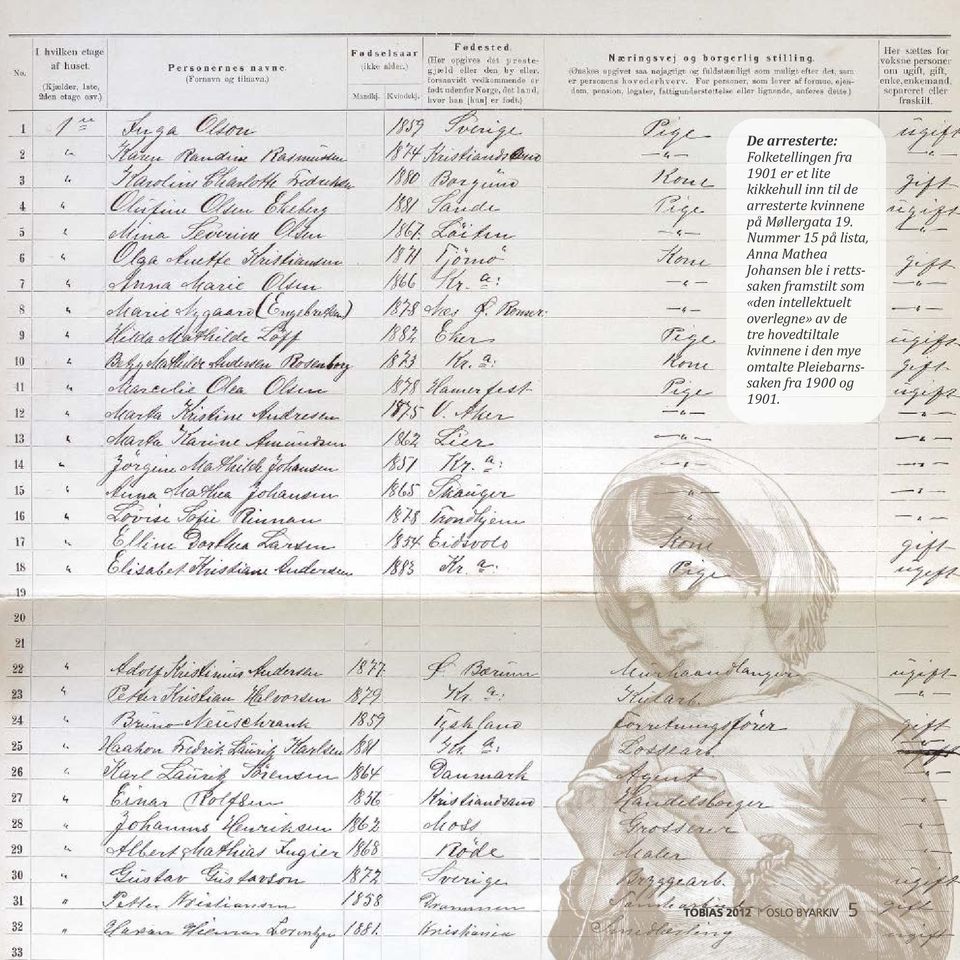 No.
I hvilken etage af huset. (Kjælder, 1ste, 2den etage osv.)
Personernes navne. (Fornavn og tilnavn.)
Fødselsaar (ikke alder.) Mandkj. Kvindekj.
Fødested. (Her opgives det prestegjæld eller den by eller, forsaavidt vedkommende er født udenfor Norge, det land, hvor han [hun] er født.)
Næringsvej og borgerlig stilling. (Ønskes opgivet saa nøjagtigt og fuldstændigt som muligt efter det, som er personens hovederhverv. For personer, som lever af formue, ejendom, pension, legater, fattigunderstøttelse eller lignende, anføres dette.)
Her sættes for voksne personer om ugift, gift, enke, enkemand, separeret eller fraskilt.
1 1ste Inga Olson 1859 Sverige Pige ugift
2 " Karen Randine Rasmussen 1874 Kristiandsand —"— —"—
3 " Karoline Charlotte Fredriksen 1880 Borgund Kone gift
4 " Olufine Olsen Ekeberg 1881 Sande Pige ugift
5 " Mina Severine Olsen 1867 Løiten —"— —"—
6 " Olga Anette Kristiansen 1871 Tjømø Kone gift
7 " Anna Marie Olsen 1866 Kr.a: —"— —"—
8 " Marie Nygaard (Engebretsen) 1878 Næs Ø. Romer: —"— —"—
9 " Hilda Mathilde Løff 1882 Eker Pige ugift
10 " Betzy Mathilde Andersen Rosenborg 1873 Kr.a: Kone gift
11 " Marcelie Olea Olsen 1878 Hamerfest Pige ugift
12 " Marta Kristine Andresen 1875 V. Aker —"— —"—
13 " Marta Karine Amundsen 1862 Lier —"— —"—
14 " Jørgine Mathilde Johansen 1851 Kr.a: —"— —"—
15 " Anna Mathea Johansen 1865 Skauger —"— —"—
16 " Lovise Sofie Rinnan 1878 Trondhjem —"— —"—
17 " Elline Dorthea Larsen 1854 Eidsvold Kone gift
18 " Elisabet Kristiane Andersen 1883 Kr.a: Pige ugift
19
20
21
22 " Adolf Kristinius Andersen 1877 Ø. Bærum Murhaandlanger ugift
23 " Petter Kristian Halvorsen 1879 Kr.a: —"—
24 " Bruno Neuschrank 1859 Tyskland Forretningsfører gift
25 " Haakon Fredrik Lauritz Karlsen 1881 Kr.a: Løsgearb.
26 " Karl Lauritz Sørensen 1864 Danmark Agent —"—
27 " Einar Rolfsen 1856 Kristiandsand Handelsborger —"—
28 " Johannes Henriksen 1862 Moss Grosserer —"—
29 " Albert Mathias Fugier 1868 Røde Maler —"—
30 " Gustav Gustavson 1872 Sverige Bryggearb. ugift
31 " Petter Kristiansen 1858 Drammen gift
32 " Lorentzen 1881 Kristiania ugift
33
De arresterte:
Folketellingen fra
1901 er et lite
kikkehull inn til de
arresterte kvinnene
på Møllergata 19.
Nummer 15 på lista,
Anna Mathea
Johansen ble i retts-
saken framstilt som
«den intellektuelt
overlegne» av de
tre hovedtiltale
kvinnene i den mye
omtalte Pleiebarns-
saken fra 1900 og
1901.
TOBIAS 2012 | OSLO BYARKIV 5